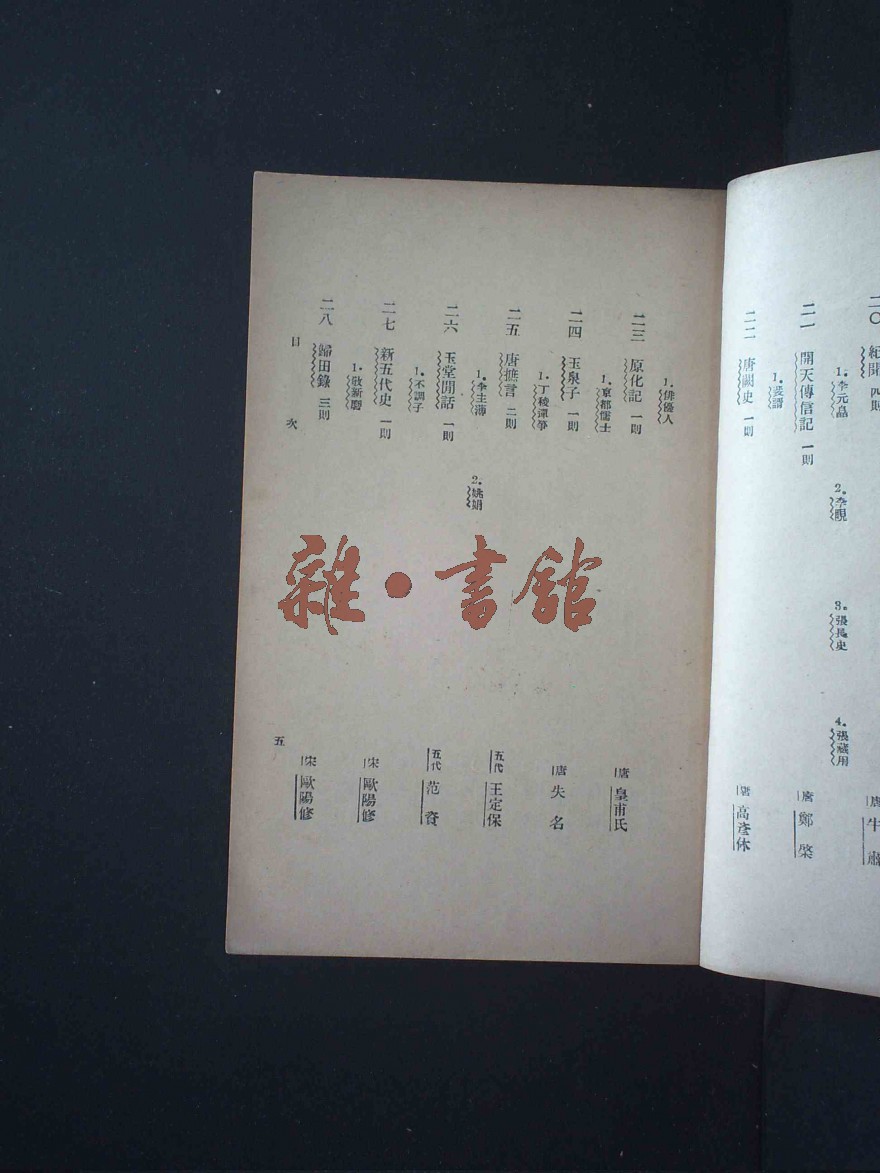 二〇 紀聞 四則 唐 牛
1. 李元皛 2. 李睍 3. 張長史 4. 張藏用
二一 開天傳信記 一則 唐 鄭棨
1. 裴諝
二二 唐闕史 一則 唐 高彥休
1. 俳優人
二三 原化記 一則 唐 皇甫氏
1. 京都儒士
二四 玉泉子 一則 唐 失名
1. 丁稜還箏
二五 唐摭言 二則 五代 王定保
1. 李主薄 2. 姚娟
二六 玉堂閒話 一則 五代 范資
1. 不調子
二七 新五代史 一則 宋 歐陽修
1. 敬新磨
二八 歸田錄 三則 宋 歐陽修
目次 五
雜·書館